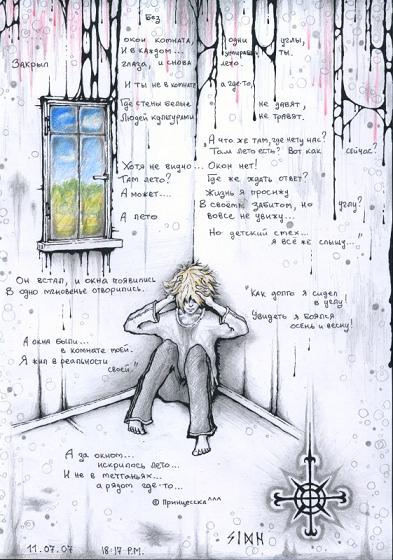 Без
окон комната, одни углы,
И в каждом... умираешь ты.
Закрыл глаза, и снова лето.
И ты не в комнате а где-то,
Где стены белые не давят,
Людей купюрами не травят.
"А что же там, где нету нас?
Там лето есть? Вот как сейчас?
Хотя не видно... Окон нет!
Там лето? Где же ждать ответ?
А может.... Жизнь я просижу
В своём забитом, но углу?
А лето вовсе не увижу...
Но детский смех...
я всё же слышу..."
Он встал, и окна появились
В одно мгновенье отворились.
"Как долго я сидел
в углу!
Увидеть я боялся
осень и весну!
А окна были...
в комнате моей.
Я жил в реальности
своей."
А за окном...
искрилось лето...
И не в мечтаньях...
а рядом где-то...
© Принцесска^^^
11.07.07 18:17 P.M.